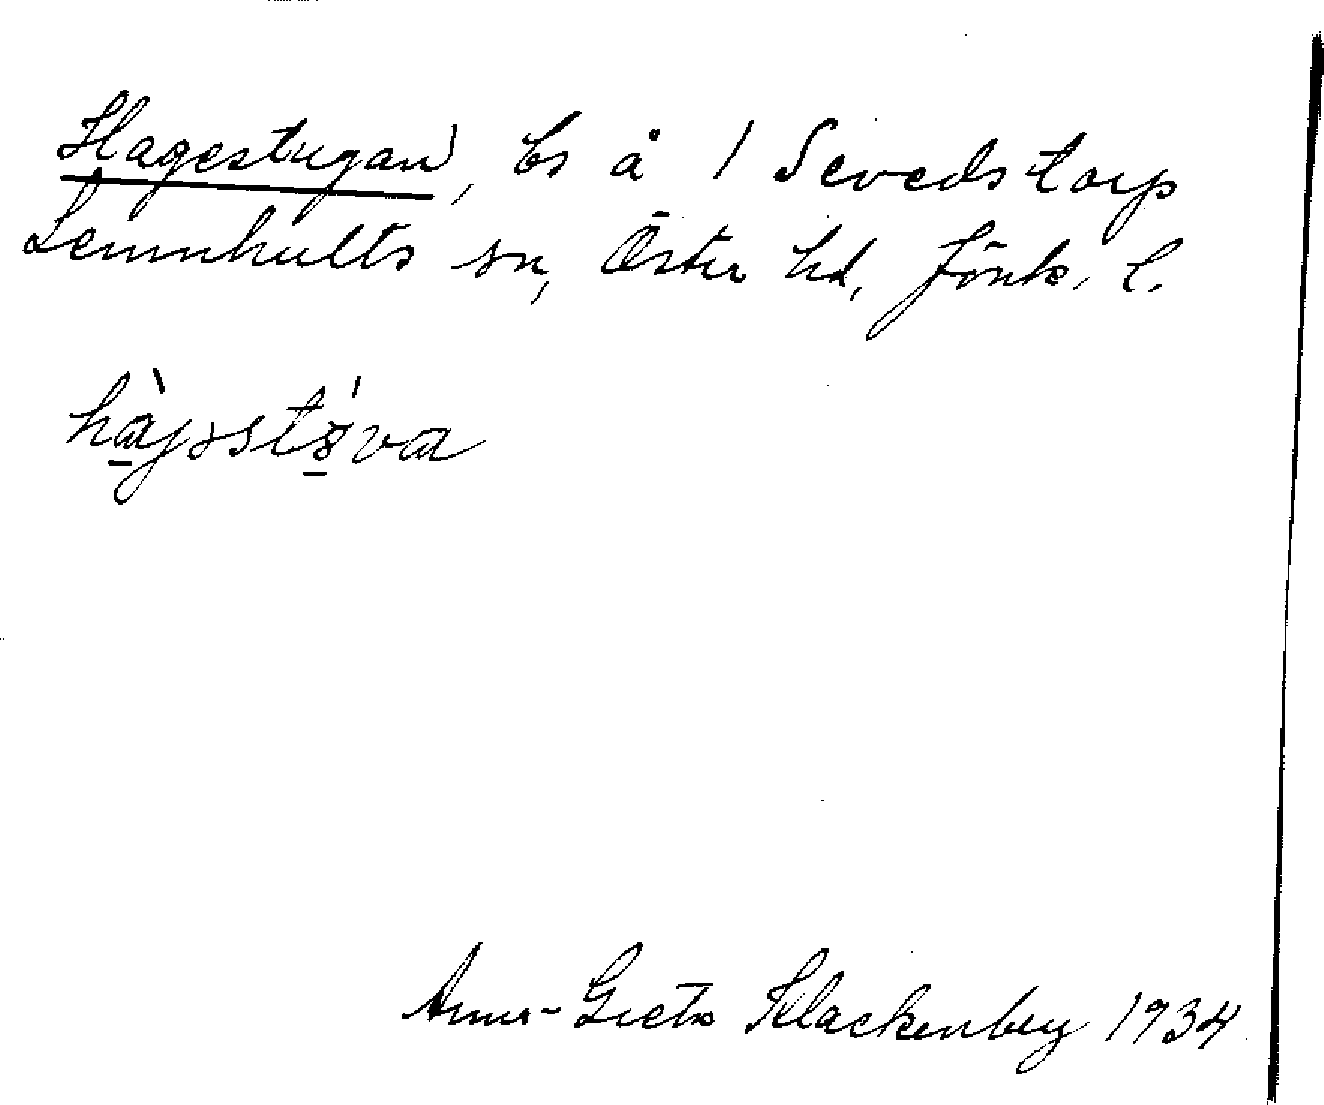 Hagestugan, bs å 1 Sevedstorp
Lemnhults sn, Östra hd, Jönk. l.
Anna-Greta Klackenberg 1934